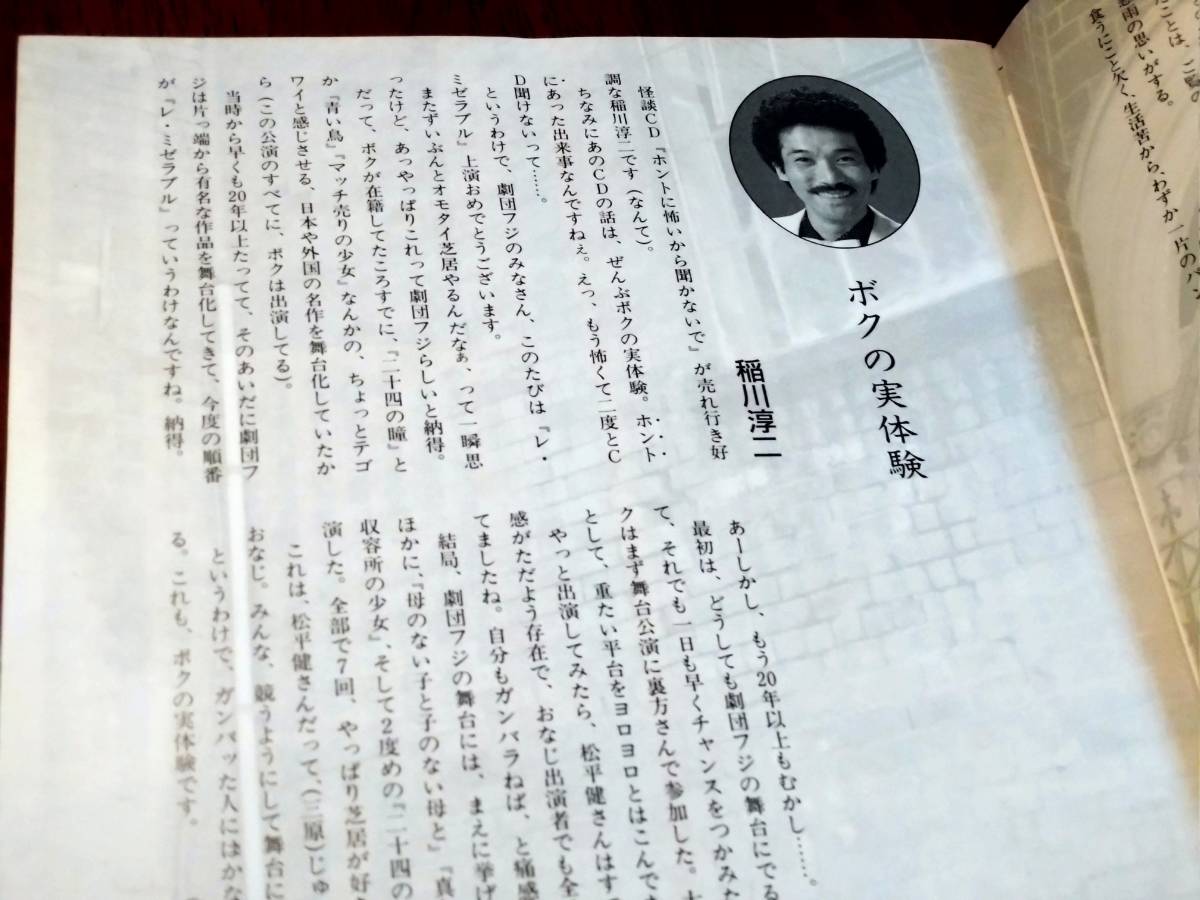 たことは、この
慈雨の思いがする。
食うにこと欠く、生活苦から、わずか一片のパン
ボクの実体験
稲川淳二
怪談CD『ホントに怖いから聞かないで』が売れ行き好
調な稲川淳二です(なんて)。
ちなみにあのCDの話は、ぜんぶボクの実体験。ホント
にあった出来事なんですねぇ。えっ、もう怖くて二度とC
D聞けないって……。
というわけで、劇団フジのみなさん、このたびは『レ・
ミゼラブル』上演おめでとうございます。
またずいぶんとオモタイ芝居やるんだなぁ、って一瞬思
ったけど、あっやっぱりこれって劇団フジらしいと納得。
だって、ボクが在籍してたころすでに、『二十四の瞳』と
か『青い鳥』『マッチ売りの少女』なんかの、ちょっとテゴ
ワイと感じさせる、日本や外国の名作を舞台化していたか
ら(この公演のすべてに、ボクは出演してる)。
当時から早くも20年以上たってて、そのあいだに劇団フ
ジは片っ端から有名な作品を舞台化してきて、今度の順番
が『レ・ミゼラブル』っていうわけなんですね。納得。
あーしかし、もう20年以上もむかし……。
最初は、どうしても劇団フジの舞台にでる
て、それでも一日も早くチャンスをつかみた
クはまず舞台公演に裏方さんで参加した。
として、重たい平台をヨロヨロとはこんで
やっと出演してみたら、松平健さんはす
感がただよう存在で、おなじ出演者でも全
てましたね。自分もガンバラねば、と痛感
結局、劇団フジの舞台には、まえに挙げ
ほかに、『母のない子と子のない母と』『真
収容所の少女』、そして2度めの『二十四の
演した。全部で7回、やっぱり芝居が好
これは、松平健さんだって、(三原)じゅ
おなじ。みんな、競うようにして舞台に
というわけで、ガンバッた人にはかな
る。これも、ボクの実体験です。